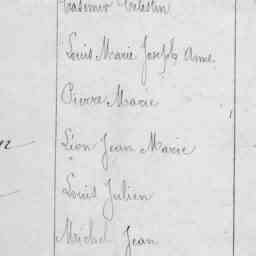 Casimir Célestin
Louis Marie Joseph Aimé
Pierre Marie
Léon Jean Marie
Louis Julien
Michel Jean